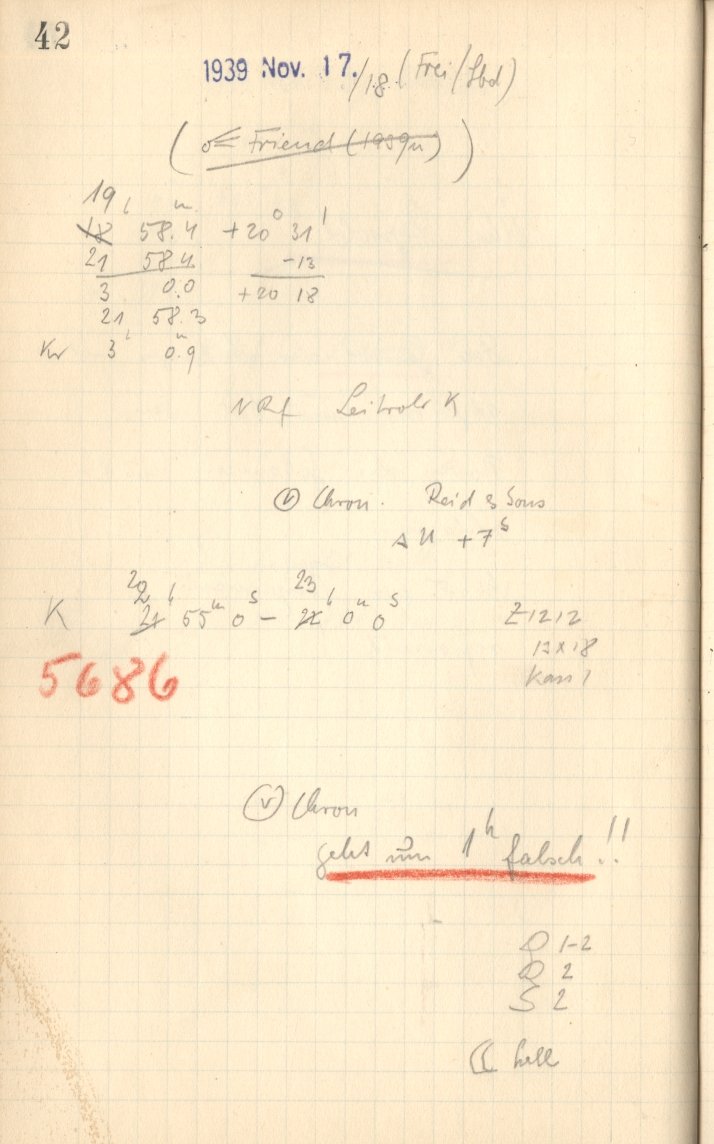 42
1939 Nov. 17./18 (Frei/Sbd)
(☄ Friend (1939n))
19 h m
18 58.4 +20° 31'
21 58 4 -13
3 0.0 +20 18
21 58.3
Kr 3h 0m.9
NRf Leitrohr K
Ⓥ Chron. Reid & Sons
Δu +7s
22 23
K 21h 55m 0s – 22h 0m 0s Z1212
12x18
Kass
5686
Ⓥ Chron
geht um 1h falsch!!
1-2
2
S 2
☾ hell